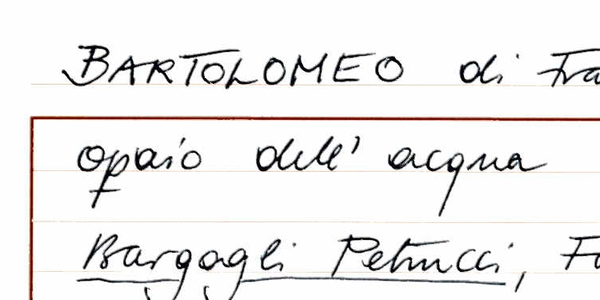 BARTOLOMEO di Fra
opaio dell' acqua
Bargagli Petrucci, Fa